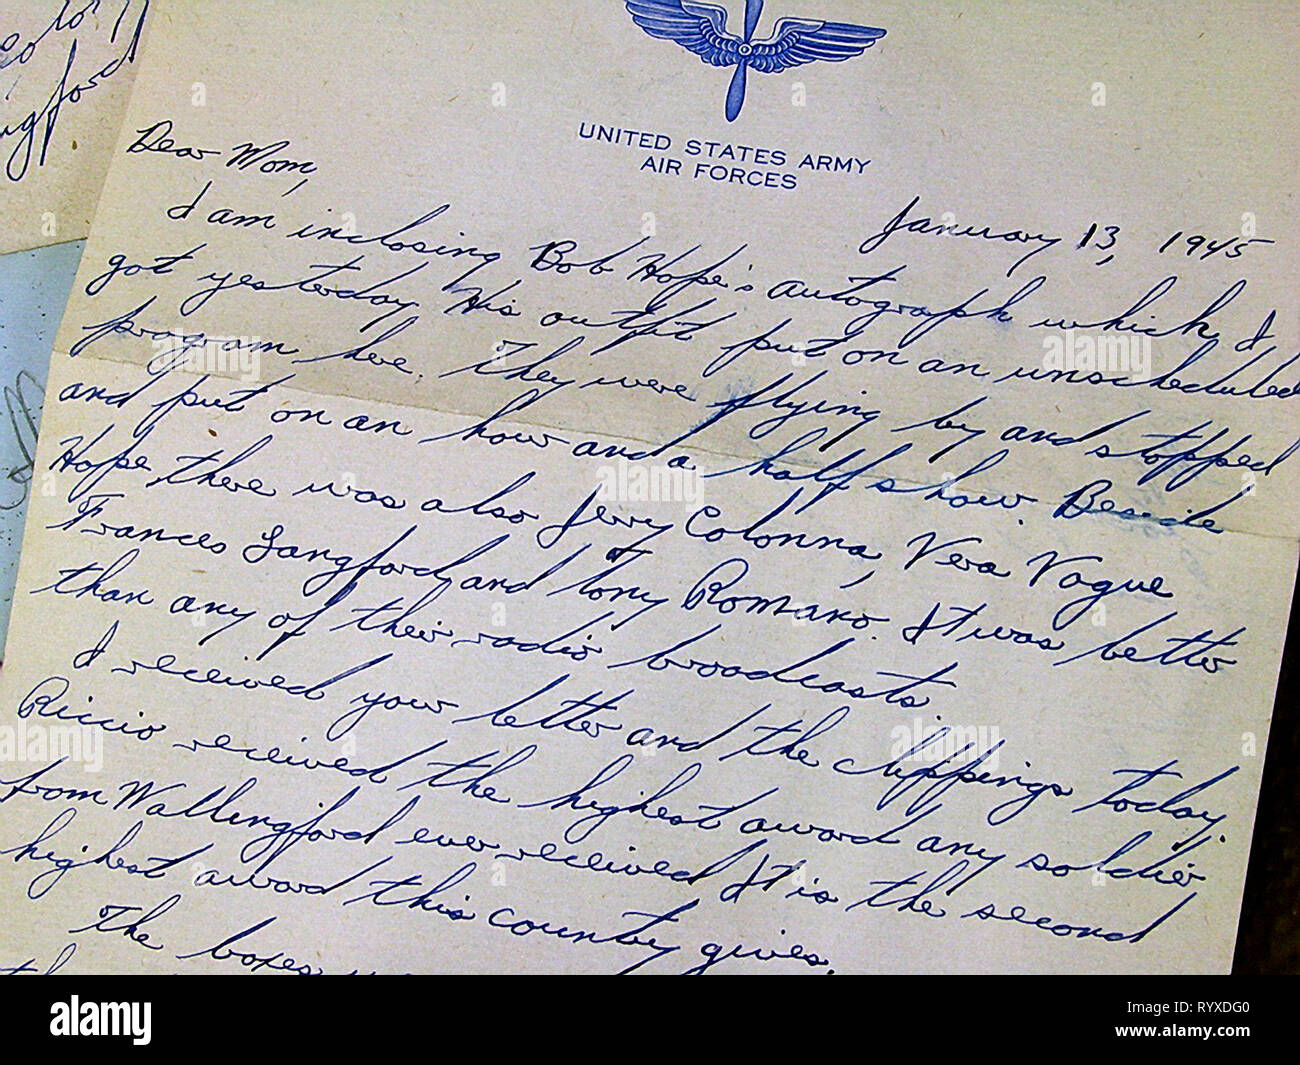 UNITED STATES ARMY
AIR FORCES
January 13, 1945
Dear Mom,
I am inclosing Bob Hope's autograph which I
got yesterday. His outfit put on an unscheduled
program here. They were flying by and stopped
and put on an hour and a half show. Beside
Hope, there was also Jerry Colonna, Vera Vague
Frances Langford, and Tony Romano. It was better
than any of their radio broadcasts.
I received your letter and the clippings today.
Riccio received the highest award any soldier
from Wallingford ever received. It is the second
highest award this country gives.
The boxes
alamy
Image ID: RYXDG0
www.alamy.com